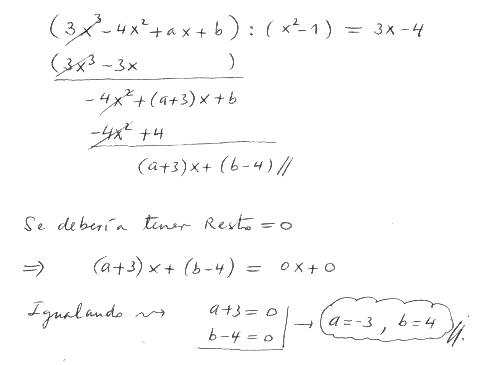 (3x³-4x²+ax+b) : (x²-1) = 3x-4
(3x³-3x )
-4x²+(a+3)x+b
-4x²+4
(a+3)x+(b-4)//
Se debería tener Resto=0
⇒ (a+3)x+(b-4) = 0x+0
Igualando ⇝ a+3=0
b-4=0 → a=-3, b=4 //.